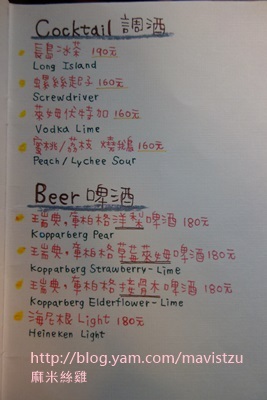 Cocktail 調酒
長島冰茶 190元
Long Island
螺絲起子 160元
Screwdriver
萊姆伏特加 160元
Vodka Lime
蜜桃/荔枝 燒酒 160元
Peach/Lychee Sour
Beer 啤酒
瑞典,車柏格洋梨啤酒 180元
Kopparberg Pear
瑞典,車柏格草莓萊姆啤酒 180元
Kopparberg Strawberry-Lime
瑞典,車柏格接骨木啤酒 180元
Kopparberg Elderflower-Lime
海尼根 Light 180元
Heineken Light
http://blog.yam.com/mavistzu
麻米絲雞